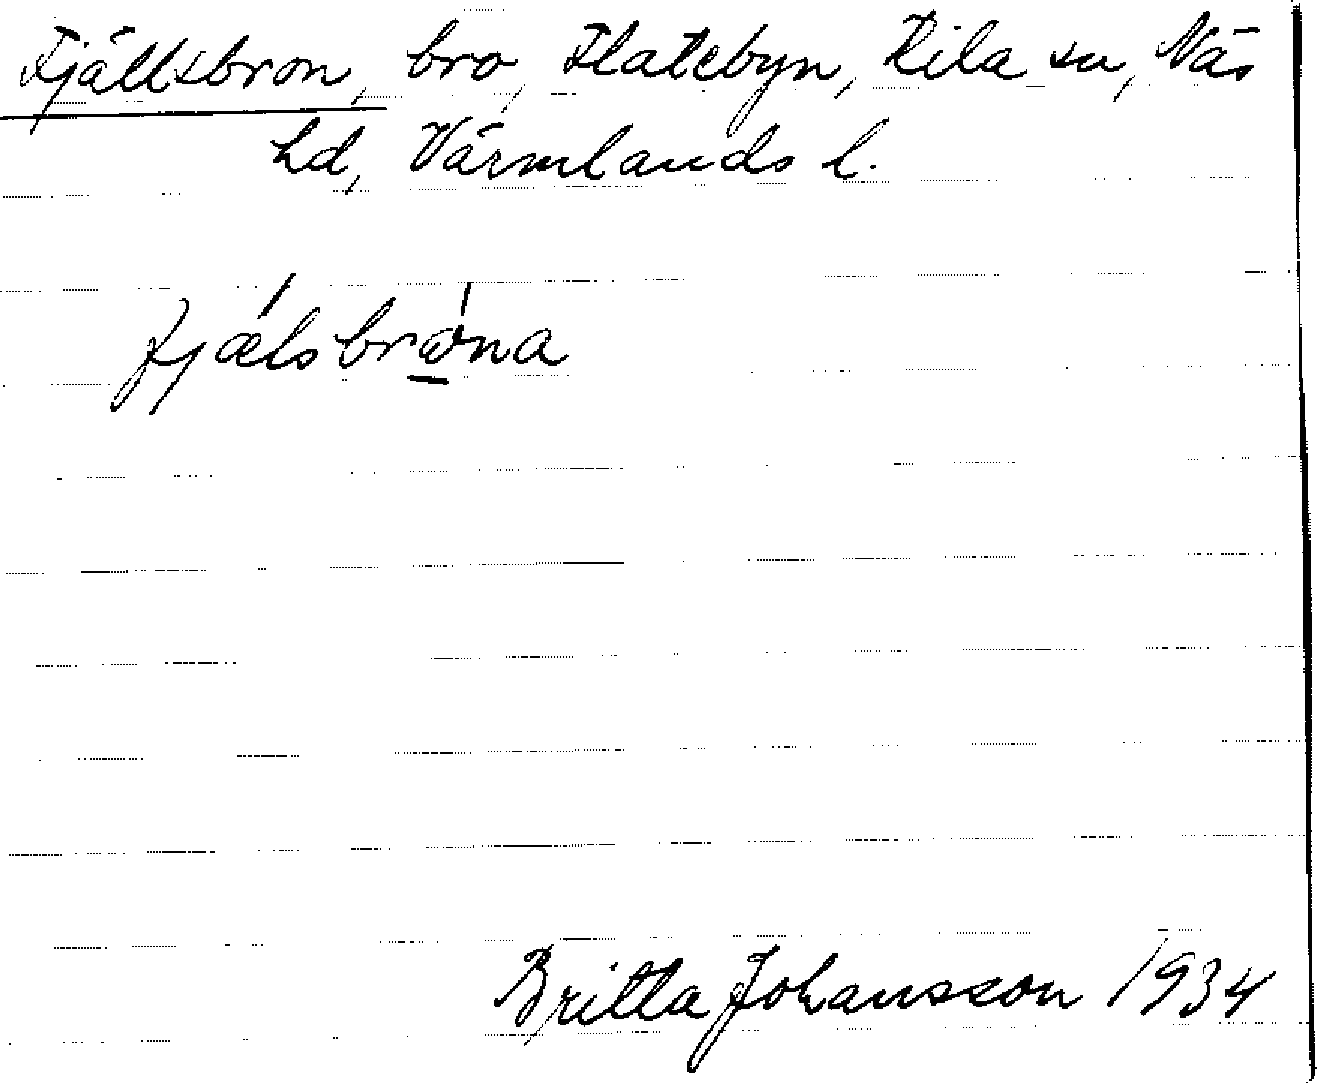 Fjällsbron, bro, Flatebyn, Kila sn, Näs
hd, Värmlands l.
fjælsbrøna
Britta Johansson 1934